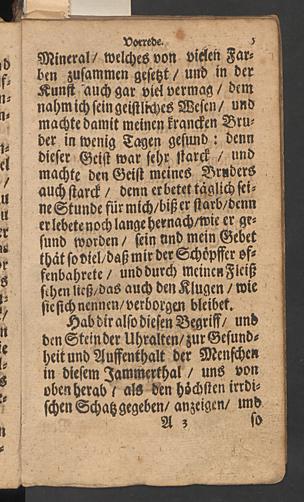 Vorrede. 3
Mineral/ welches von vielen Far-
ben zusammen gesetzt / und in der
Kunst auch gar viel vermag / dem
nahm ich sein geistliches Wesen/ und
machte damit meinen krancken Bru-
der in wenig Tagen gesund: denn
dieser Geist war sehr starck / und
machte den Geist meines Bruders
auch starck / denn er betet täglich sei-
ne Stunde für mich/ biß er starb/denn
er lebete noch lange hernach/wie er ge-
sund worden/ sein und mein Gebet
thät so viel/daß mir der Schöpffer of-
fenbahrete / und durch meinen Fleiß
sehen ließ/das auch den Klugen / wie
sie sich nennen/verborgen bleibet.
Hab dir also diesen Begriff/ und
den Stein der Uhralten/zur Gesund-
heit und Auffenthalt der Menschen
in diesem Jammerthal / uns von
oben herab / als den höchsten irrdi-
schen Schatz gegeben/ anzeigen/ und
A 3 so